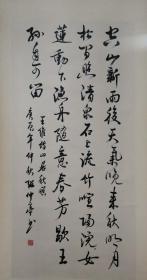 空山新雨後天氣晚來秋明月
松間照清泉石上流竹喧歸浣女
蓮動下漁舟隨意春芳歇王
孫自可留
王維詩山居秋暝
年仲秋